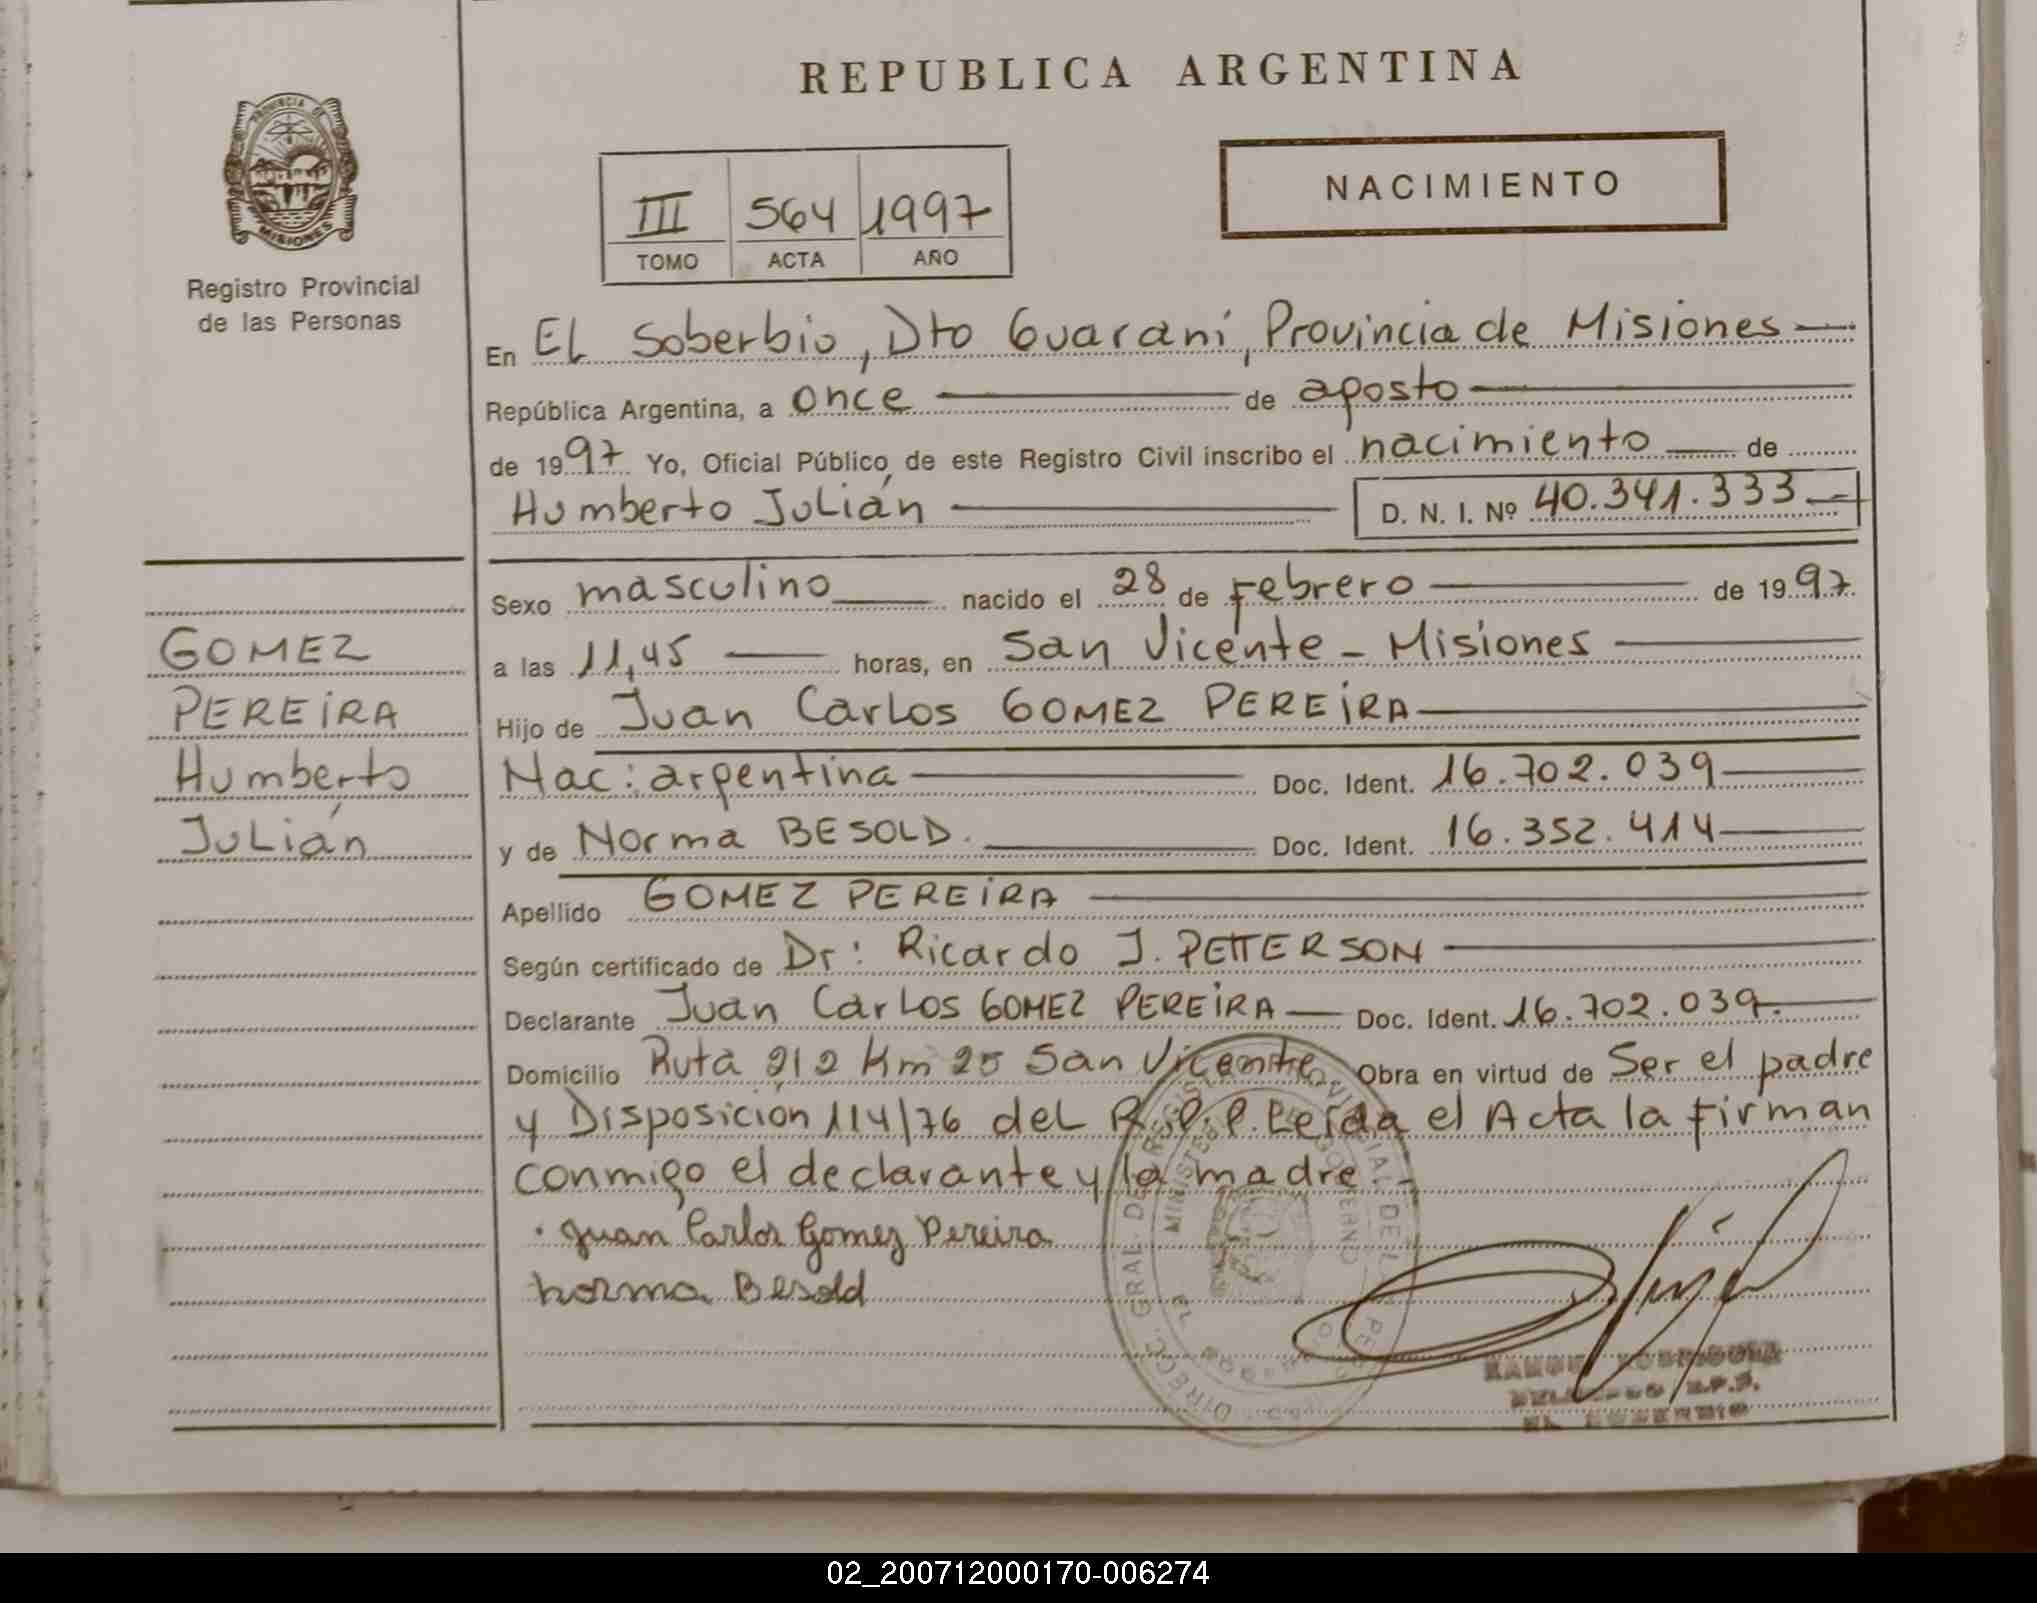 REPUBLICA ARGENTINA
PROVINCIA DE
MISIONES
Registro Provincial
de las Personas
III 564 1997
TOMO ACTA AÑO
NACIMIENTO
En EL Soberbio, Dto Guaraní, Provincia de Misiones
República Argentina, a once de agosto
de 1997 Yo, Oficial Público de este Registro Civil inscribo el nacimiento de
Humberto Julián D. N. I. Nº 40.341.333
Sexo masculino nacido el 28 de Febrero de 1997
a las 11,45 horas, en San Vicente - Misiones
Hijo de Juan Carlos GOMEZ PEREIRA
Nac: argentina Doc. Ident. 16.702.039
y de Norma BESOLD. Doc. Ident. 16.352.414
Apellido GOMEZ PEREIRA
Según certificado de Dr: Ricardo J. PETTERSON
Declarante Juan Carlos GOMEZ PEREIRA Doc. Ident. 16.702.039.
Domicilio Ruta 212 Km 25 San Vicente Obra en virtud de Ser el padre
y Disposición 114/76 del R.P.P. Leida el Acta la Firman
conmigo el declarante y la madre.-
Juan Carlos Gomez Pereira
Norma Besold
GOMEZ
PEREIRA
Humberto
Julián
EL SOBERBIO
02_200712000170-006274